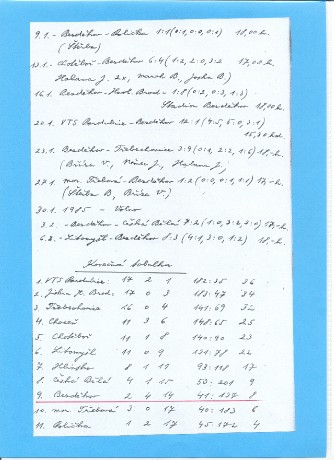 9.1. - Bezděkov - Polička 1:1 (0:1, 0:0, 1:0) 18,00 h.
13.1. - Chotěboř - Bezděkov 6:4 (1:2, 2:0, 3:2 17,00 h.
Holava J. 2x,
16.1. Bezděkov - Havl. Brod - 1:8 (0:2, 0:3, 1:3)
Stadion Bezděkov 18,00 h.
20.1. VTS Pardubice - Bezděkov 12:1 (4:5, 5:0, 3:1)
15,30 hod.
23.1. Bezděkov - Třebechovice 3:9 (0:1, 2:2, 1:6) 18,- h.
27.1. mor. Třebová - Bezděkov 1:2 (0:0, 0:1, 1:1) 17,- h.
30.1. 1985 - Volno
3.2. - Bezděkov - Česká Bělá 7:2 (1:0, 3:2, 3:0) 17,- h.
6.2. - Litomyšl - Bezděkov 8:3 (4:1, 3:0, 1:2) 18,- h.
Konečná tabulka
1. VTS Pardubice: 17 2 1 182:35 36
2. Brod: 17 0 3 183:47 34
3. Třebechovice 16 0 4 141:69 32
4. Choceň 11 3 6 148:65 25
5. Chotěboř 11 1 8 140:90 23
6. Litomyšl 11 0 9 131:78 22
7. Hlinsko 8 1 11 93:118 17
8. Česká Bělá 4 1 15 53:201 9
9. Bezděkov 2 4 14 41:137 8
10. mor Třebová 3 0 17 40:183 6
11. Polička 1 2 17 45:172 4